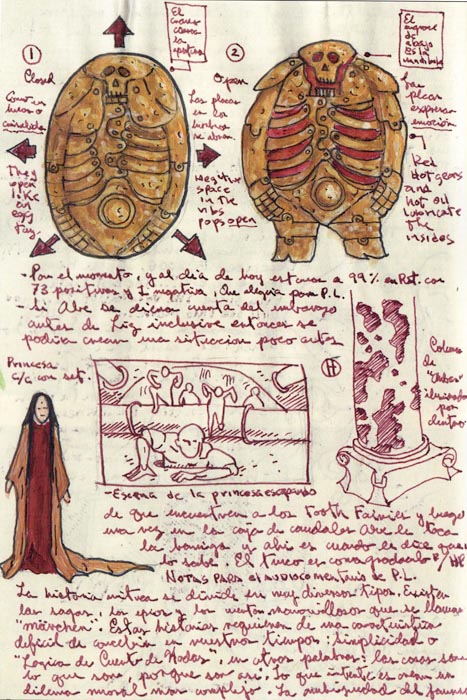 El
cierra
la
El engrane
de
abajo
es la
mandibula
1
2
Closed
Como un
huevo o
Open
Las placas
en la
se abren
Las
placas
expresan
emoción
they
open
like
an
egg
toy.
Negative
space
in the
ribs
pops open
Red
hot gears
and
hot oil
lubricate
the
insides
- Por el momento, y al día de hoy estamos a 99% en Rot. con
73 positivos y 1 negativo, Que alegría para P.L.
- Si Abe se diera cuenta del embarazo
antes de Liz inclusive entonces se
podría crear una situacion poco antes
Princesa
c/c con set.
H
Columna
de
iluminada
por
dentro
- Escena de la princesa escapando
de que encuentren a los Tooth Fairies y luego
una vez en la caja de caudales Abe le toca
la barriga y ahi es cuando le dice que
lo sabe. El truco es P/HB
NOTAS PARA el AUDIOCOMENTARIO de P.L.
La historia mitica se divide en muy diversos tipos. Existen
las sagas, los epics y los cuentos maravillosos que se llaman
"märchen". Estas historias requieren de una caracteristica
dificil de encontrar en nuestros tiempos: simplicidad o
"Logica de Cuento de Hadas", en otras palabras: las cosas son
lo que son, porque son asi. Lo que intenté es crear un
dilema moral mas complejo. La ambiguedad del